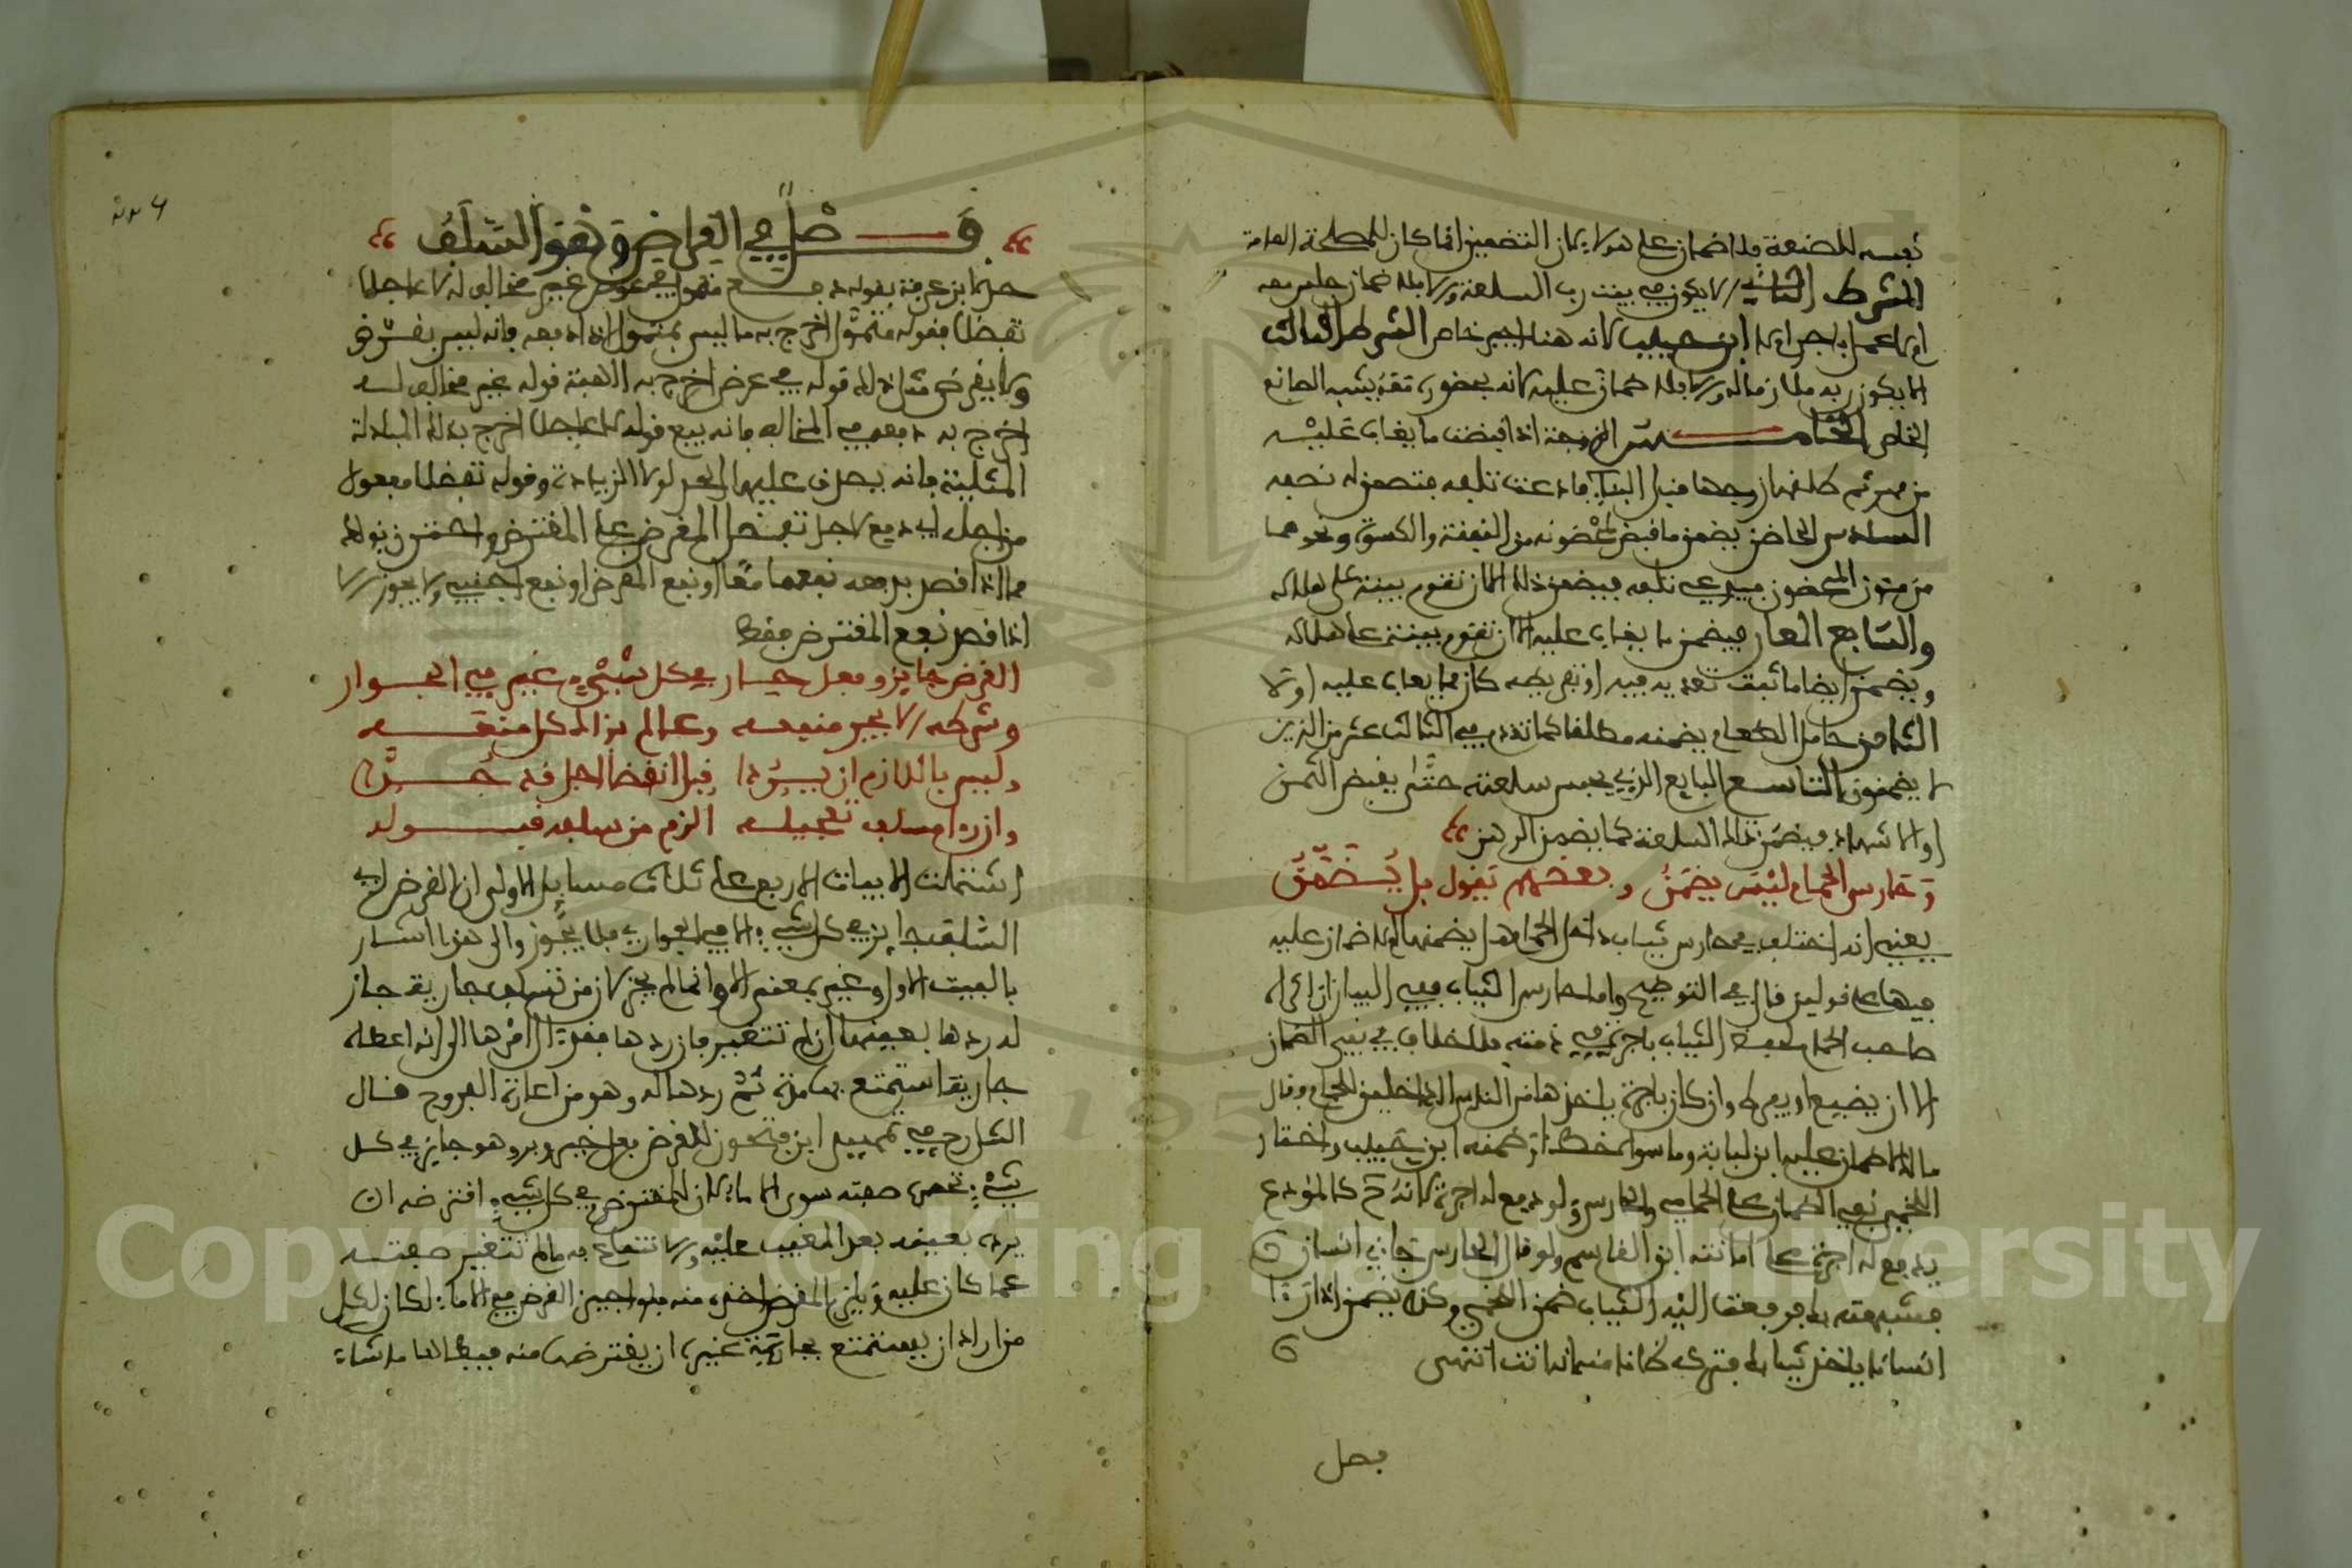 نفسه للصنعة فلا ضمان عليه لان التضمين انما كان للمصلحة العامة
الشرط الثاني ان لا يكون في بيت رب السلعة ولا فلا ضمان جلس معه
ام لا عمل باجر ام لا ابن حبيب لانه هنا اجير خاص الشرط الثالث
ان لا يكون ربه ملازما له ولا فلا ضمان عليه لانه بحضور ربه يشبه الصانع
الخاص الخامس الزوجة اذا قبضت ما يغاب عليه
من مهر ثم طلقها زوجها قبل البناء فادعت تلفه فتضمن له نصفه
السادس الحاضن يضمن ما قبض لمحضونه من النفقة والكسوة ونحوهما
من مئون المحضون فيدعي تلفه فيضمن ذلك الا ان تقوم بينة على هلاكه
والسابع المعار فيضمن ما يغاب عليه الا ان تقوم بينة على هلاكه
ويضمن ايضا ما ثبت تعديه فيه او تفريطه كان مما يغاب عليه او لا
الثامن حامل الطعام يضمنه مطلقا كما تقدم في الثالث عشر من الذين
لا يضمنون التاسع البايع الذي يحبس سلعته حتى يقبض الثمن
او الاشهاد فيضمن تلك السلعة كما يضمن الرهن
وحارس الحمام ليس يضمن وبعضهم يقول بل يضمن
يعني انه اختلف في حارس ثياب داخل الحمام هل يضمنها ام لا ضمان عليه
فيها على قولين قال في التوضيح واما حارس الثياب ففي البيان ان اكراه
صاحب الحمام لحفظ الثياب باجرة في ذمته فلا خلاف في نفي الضمان
الا ان يضيع او يفرط وان كان باجرة ياخذها من الناس الداخلين للحمام فقال
مالك لا ضمان عليه ابن لبابة وما سواه خطا وضمنه ابن حبيب واختار
اللخمي نفي الضمان على الحمامي والحارس ولو دفع له اجرة لانه كالمودع
يدفع له اجرة على امانته ابن القاسم ولو قال الحارس جاءني انسان
فشبهته بك فدفعت اليه الثياب ضمن اللخمي وكذا يضمن اذا راى
انسانا ياخذ ثيابك فتركه ظانا منه انه انت انتهى
فصل
فصل في القرض وهو السلف
حده ابن عرفة بقوله دفع متمول في عوض غير مخالف له لا عاجلا
تفضلا فقوله متمول اخرج به ما ليس بمتمول اذا دفعه فانه ليس بقرض
ولا يقرض مثل ذلك قوله في عوض اخرج به الهبة قوله غير مخالف له
اخرج به دفعه في المخالف فانه بيع قوله لا عاجلا اخرج بذلك المبادلة
المثلية فانه يصدق عليها الحد لولا الزيادة وقوله تفضلا مفعول
من اجله اي دفع لاجل تفضل المقرض على المقترض واحترز بذلك
مما اذا قصد بدفعه نفعهما معا او نفع المقرض او نفع اجنبي ولا يجوز الا
اذا قصد نفع المقترض فقط
القرض جايز وفعل جار في كل شيء غير في الجوار
وشرطه ان لا يجر منفعه وحاكم بذاك كل منعه
وليس باللازم ان يردا قبل انقضا اجل قد حدا
وان راى مسلف تعجيله الزم من سلفه قبوله
اشتملت الابيات الاربع على ثلاث مسايل الاولى ان القرض اي
السلف جايز في كل شيء الا في الجواري فلا يجوز والى هذا اشار
بالبيت الاول وغير بمعنى الا وانما لم يجز لان من تسلف جارية جاز
له ردها بعينها ان لم تتغير فان ردها ففرق ال امرها الى انه اعطاه
جارية استمتع بها مدة ثم ردها له وهو من اعارة الفروج قال
الشارح في تمهيد ابن فتحون القرض فعل خير وبر وهو جايز في كل
شيء تحصره صفته سوى الاماء لان للمقترض في كل شيء اقترضه ان
يرده بعينه بعد المغيب عليه والانتفاع به ما لم تتغير صفته
عما كان عليه ويلزم المقرض اخذه منه فلو اجيز القرض في الاماء لكان لكل
من اراد ان يستمتع بجارية غيره ان يقترضها منه فيطاها ما شاء